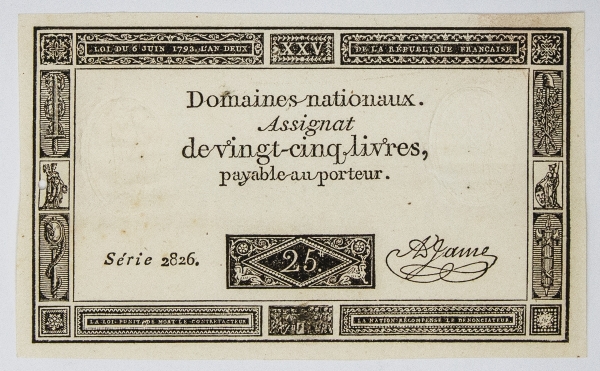 LOI DU 6 JUIN 1793, L'AN DEUX
XXV
DE LA RÉPUBLIQUE FRANÇAISE
Domaines nationaux.
Assignat
de vingt-cinq livres,
payable au porteur.
Série 2826.
25.
A. Jame
LA LOI PUNIT DE MORT LE CONTREFACTEUR
LA NATION RÉCOMPENSE LE DÉNONCIATEUR